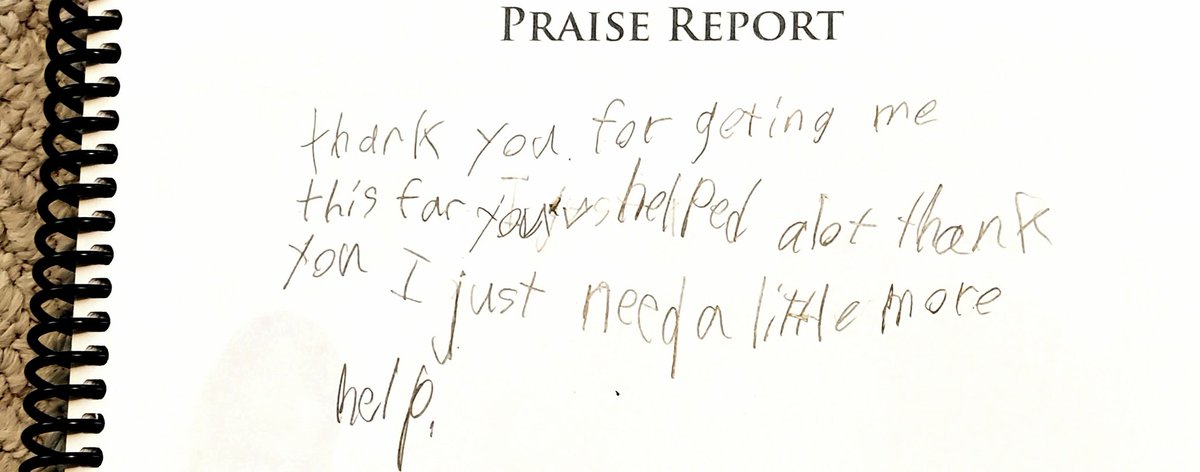 PRAISE REPORT
thank you. for geting me
this far you'v helped alot thank
you I just need a little more
help.